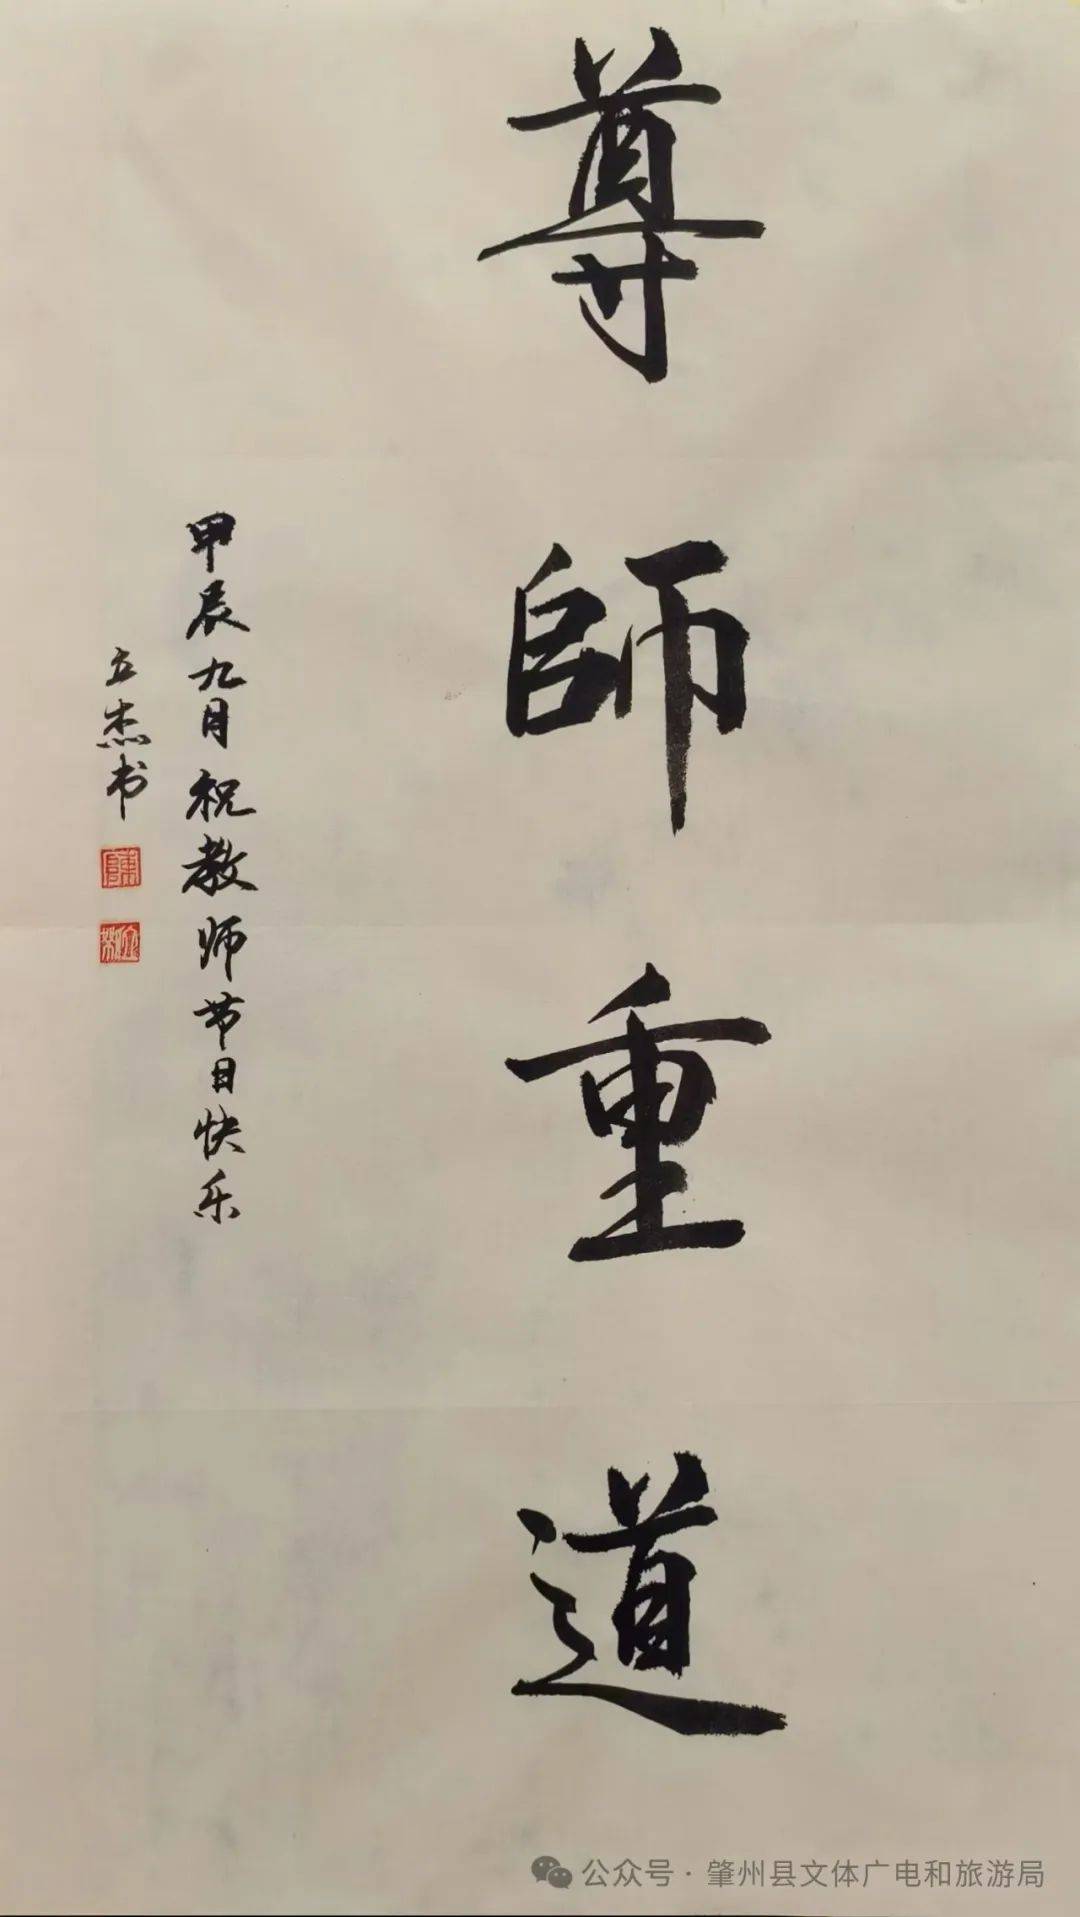 尊師重道
甲辰九月祝教师节日快乐
立杰书
公众号·肇州县文体广电和旅游局